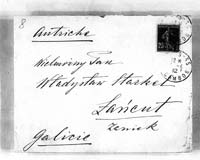 8
Autriche
Wielmożny Pan
Władysław
Łańcut
Zamek
Galicie